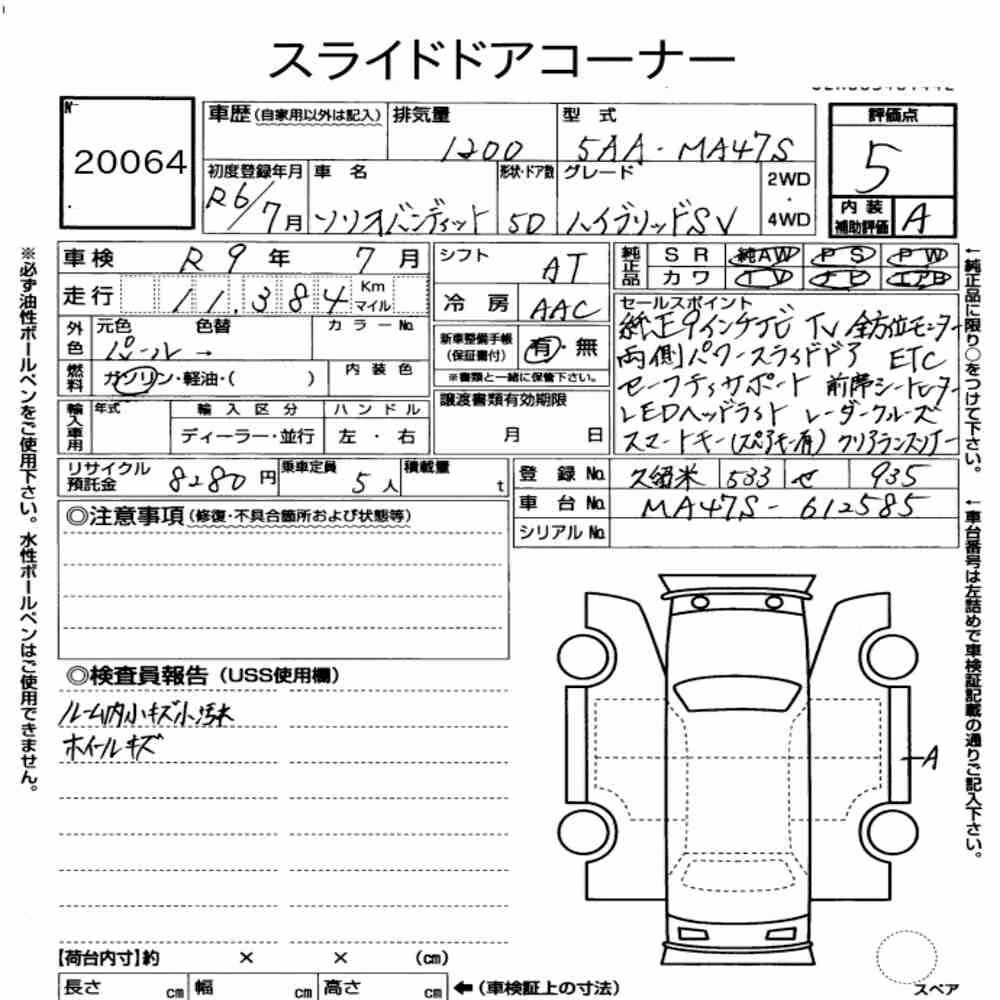 スライドドアコーナー
No 20064
車歴(自家用以外は記入) 排気量 1200 型式 5AA-MA47S 評価点 5
初度登録年月 R6/7月 車名 ソリオバンディット 形状・ドア数 5D グレード ハイブリッドSV 2WD・4WD 内装補助評価 A
車検 R 9年 7月 シフト AT 純正品 SR 純AW PS PW
カワ TV ナビ エアB
走行 11,384 Km マイル 冷房 AAC
セールスポイント
純正9インチナビ TV 全方位モニター
両側パワースライドドア ETC
セーフティサポート 前席シートヒーター
LEDヘッドライト レーダークルーズ
スマートキー(スペアキー有) クリアランスソナー
外色 元色 パール → 色替 カラーNo.
新車整備手帳(保証書付) 有・無
※書類と一緒に保管下さい。
燃料 ガソリン・軽油・( ) 内装色
輸入車用 年式 輸入区分 ディーラー・並行 ハンドル 左・右
譲渡書類有効期限 月 日
リサイクル預託金 8280円 乗車定員 5人 積載量 t
登録No. 久留米 533 せ 935
車台No. MA47S-612585
シリアルNo.
◎注意事項(修復・不具合箇所および状態等)
◎検査員報告(USS使用欄)
ルーム内小キズ小汚れ
ホイールキズ
A
【荷台内寸】約 × × (cm)
長さ cm 幅 cm 高さ cm ←(車検証上の寸法)
スペア
※必ず油性ボールペンをご使用下さい。水性ボールペンはご使用できません。
←純正品に限り○をつけて下さい。
←車台番号は左詰めで車検証記載の通りご記入下さい。